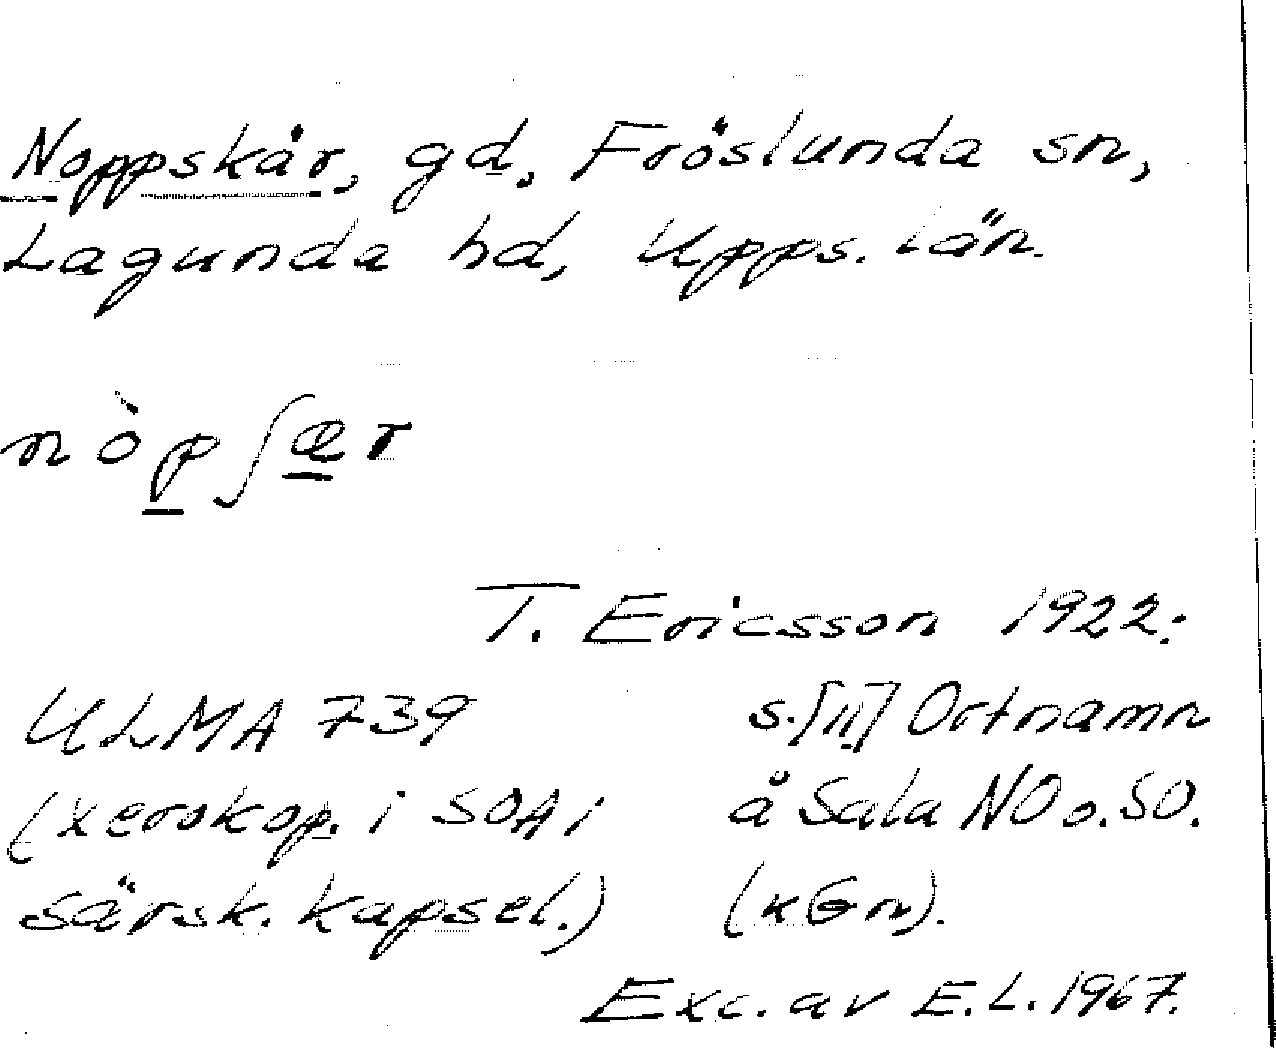 Noppskär, gd, Fröslunda sn,
Lagunda hd, Upps. län.
nòpʃær
T. Ericsson 1922:
ULMA 739 s.[11] Ortnamn
(xerokop. i SOA i å Sala NO o. SO.
särsk. kapsel.) (KGn).
Exc. av E.L. 1967.